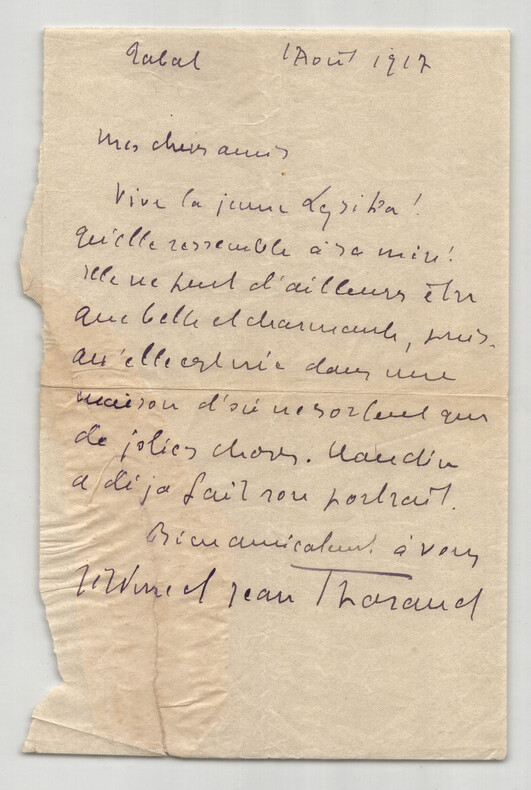 Rabat 1 Août 1917
Mes chers amis
Vive la jeune Lysika!
qu'elle ressemble à sa mère!
elle ne peut d'ailleurs être
que belle et charmante, puis-
qu'elle est née dans une
maison d'où ne sortent que
de jolies choses. Naudin
a déjà fait son portrait.
Bien amicalement à vous
Jérôme et Jean Tharaud